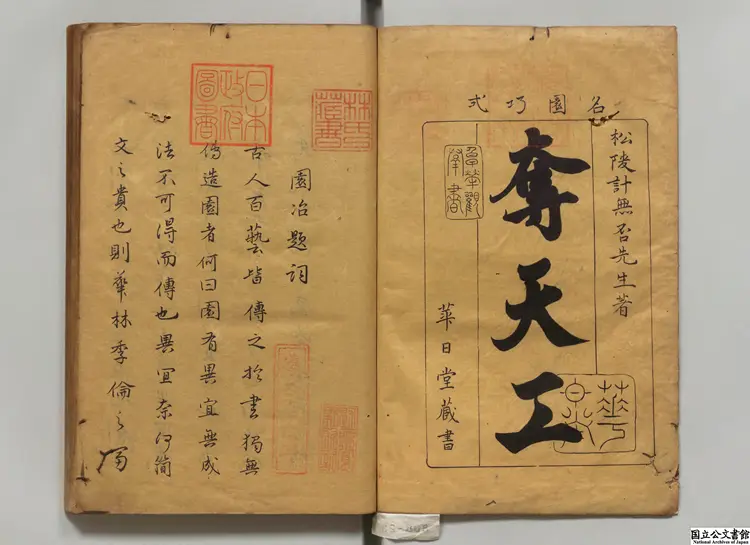 名園巧式
松陵計無否先生著
奪天工
華日堂藏書
園冶題詞
古人百藝皆傳之於書獨無
傳造園者何曰園有異宜無成
法不可得而傳也異宜奈何簡
文之貴也則華林季倫之屬
日本
政府
圖書
林氏
藏書
国立公文書館
National Archives of Japan